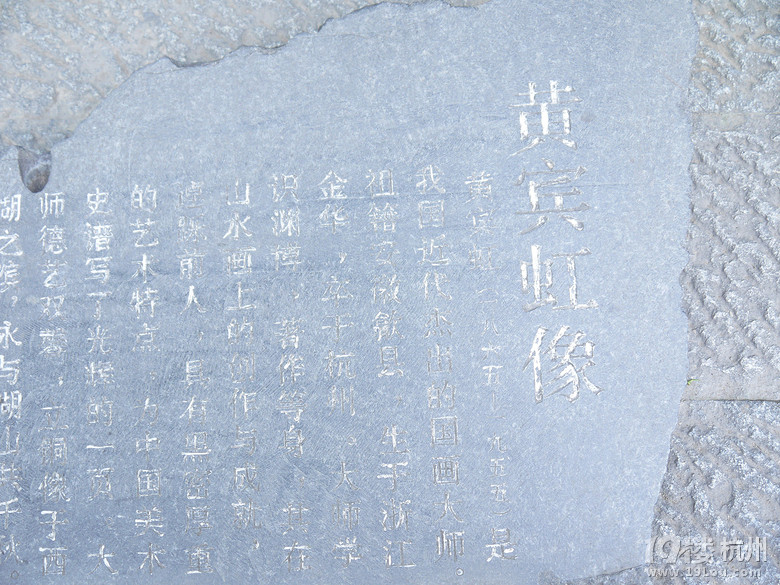 黄宾虹像
黄宾虹(一八六五—一九五五)是
我国近代杰出的国画大师。
祖籍安徽歙县,生于浙江
金华,卒于杭州。大师学
识渊博,著作等身,其在
山水画上的创作与成就,
前人,具有黑密厚重
的艺术特点,为中国美术
史谱写了光辉的一页。大
师德艺双馨,立铜像于西
湖之滨,永与湖山共千秋
19楼 杭州
www.19lou.com